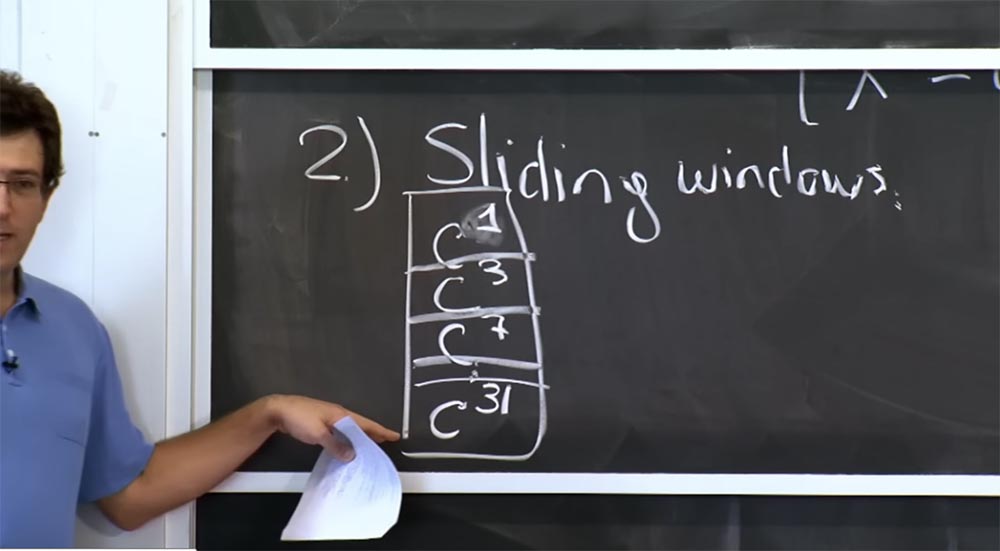 2.) Sliding windows:
C^1
C^3
C^7
C^31